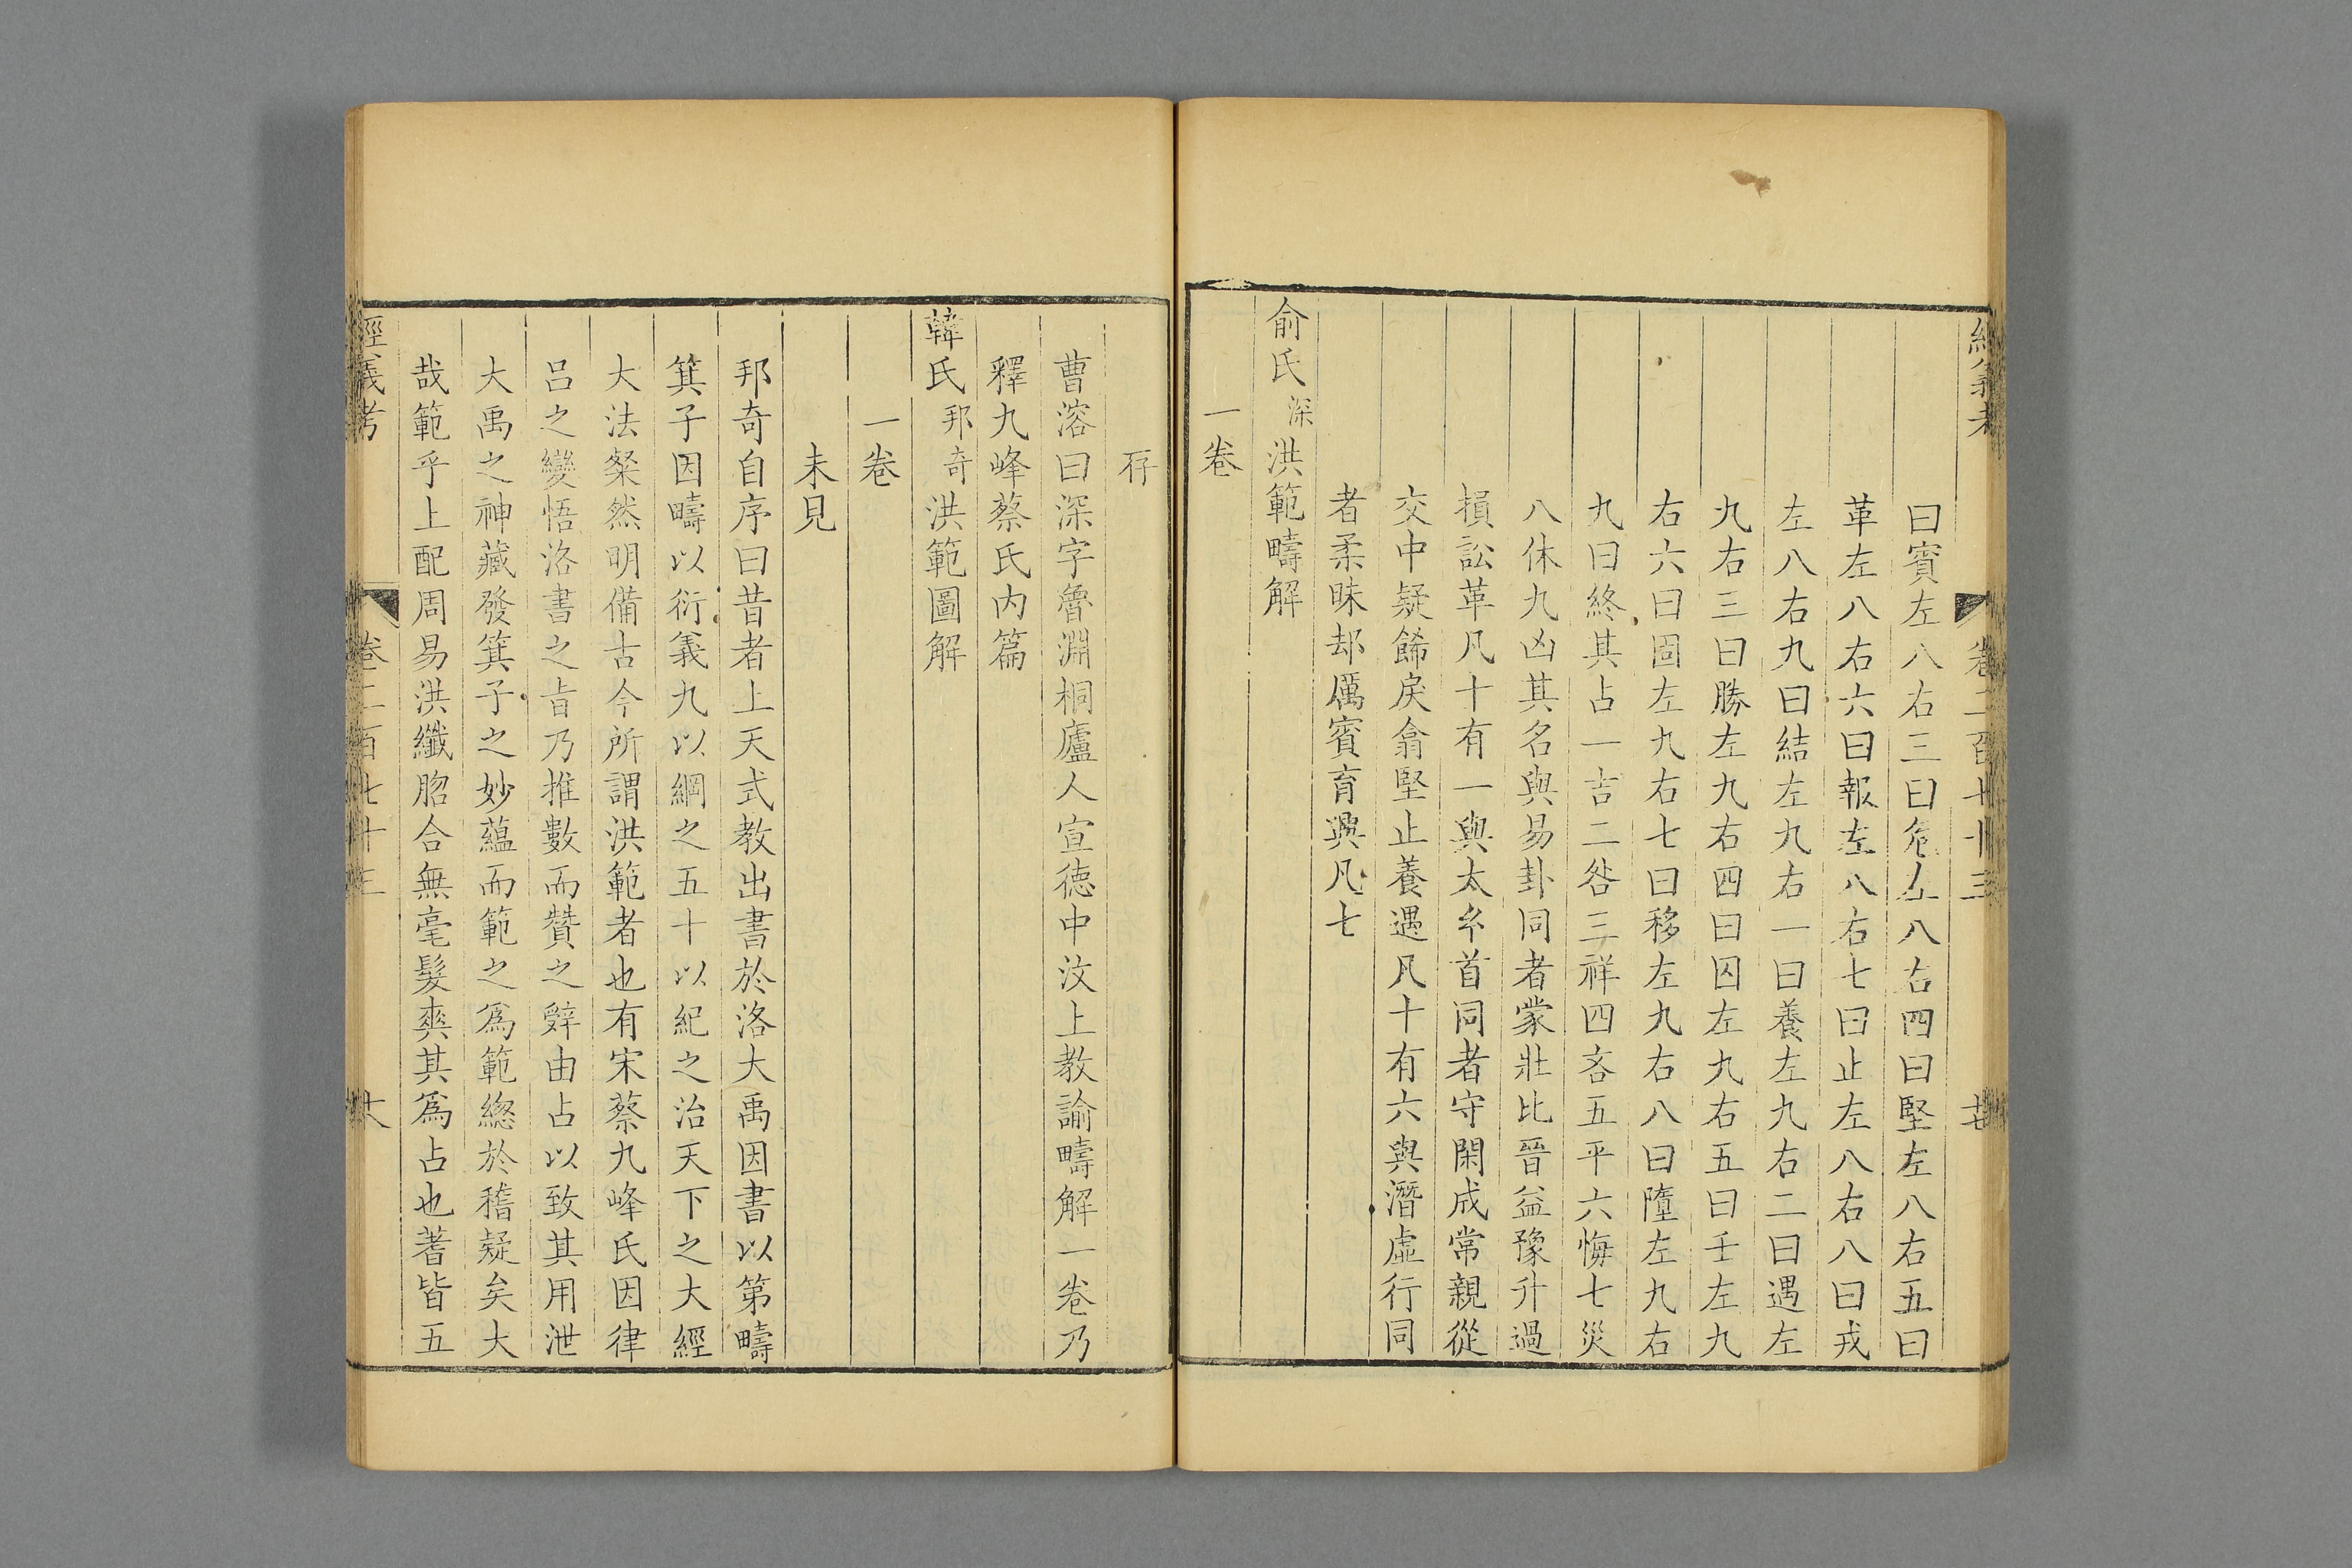 經義考 卷二百七十三 廿
曰賓左八右三曰危左八右四曰堅左八右五曰
革左八右六曰報左八右七曰止左八右八曰戎
左八右九曰結左九右一曰養左九右二曰遇左
九右三曰勝左九右四曰囚左九右五曰壬左九
右六曰固左九右七曰移左九右八曰墮左九右
九曰終其占一吉二咎三祥四吝五平六悔七災
八休九凶其名與易卦同者蒙壯比晉益豫升過
損訟革凡十有一與太𤣥首同者守閑成常親從
交中疑飾戾翕堅止養遇凡十有六與潛虛行同
者柔昧却厲賓育興凡七
俞氏深洪範疇解
一卷
存
曹溶曰深字魯淵桐廬人宣德中汶上教諭疇解一卷乃
釋九峰蔡氏内篇
韓氏邦奇洪範圖解
一卷
未見
邦奇自序曰昔者上天式教出書於洛大禹因書以第疇
箕子因疇以衍義九以綱之五十以紀之治天下之大經
大法粲然明備古今所謂洪範者也有宋蔡九峰氏因律
吕之變悟洛書之㫖乃推數而贊之辭由占以致其用泄
大禹之神藏發箕子之妙蘊而範之為範緫於稽疑矣大
哉範乎上配周易洪纖脗合無毫髮爽其為占也蓍皆五
經義考 卷二百七十三